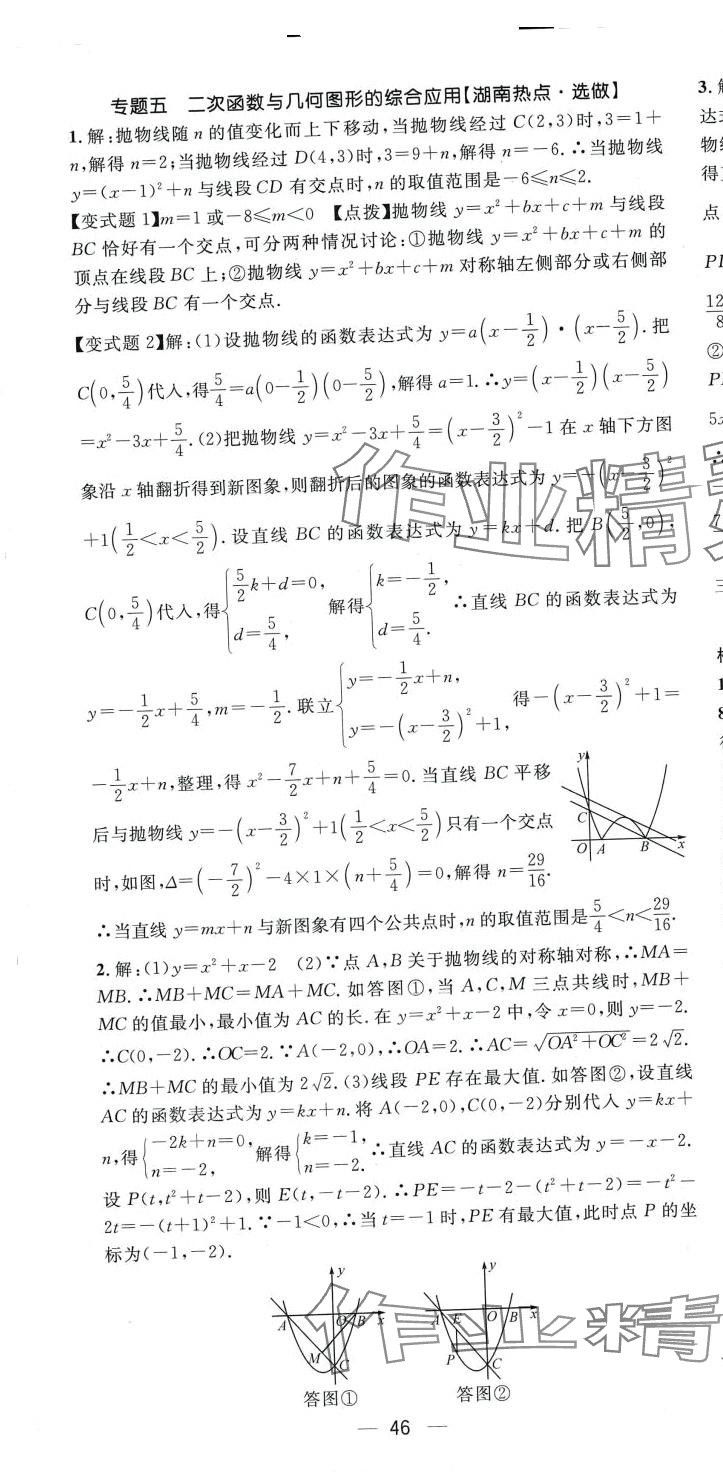 专题五 二次函数与几何图形的综合应用【湖南热点·选做】
1.解:抛物线随 n 的值变化而上下移动,当抛物线经过 C(2,3)时,3=1+
n,解得 n=2;当抛物线经过 D(4,3)时,3=9+n,解得 n=-6.∴当抛物线
y=(x-1)²+n 与线段 CD 有交点时,n 的取值范围是-6≤n≤2.
【变式题 1】m=1 或-8≤m<0 【点拨】抛物线 y=x²+bx+c+m 与线段
BC 恰好有一个交点,可分两种情况讨论:①抛物线 y=x²+bx+c+m 的
顶点在线段 BC 上;②抛物线 y=x²+bx+c+m 对称轴左侧部分或右侧部
分与线段 BC 有一个交点.
【变式题 2】解:(1)设抛物线的函数表达式为 y=a(x-1/2)·(x-5/2).把
C(0,5/4)代入,得5/4=a(0-1/2)(0-5/2),解得 a=1.∴y=(x-1/2)(x-5/2)
=x²-3x+5/4.(2)把抛物线 y=x²-3x+5/4=(x-3/2)²-1 在 x 轴下方图
象沿 x 轴翻折得到新图象,则翻折后的图象的函数表达式为 y=-(x-3/2)²
+1(1/2<x<5/2).设直线 BC 的函数表达式为 y=kx+d.把 B(5/2,0),
C(0,5/4)代入,得{5/2k+d=0, d=5/4, 解得{k=-1/2, d=5/4. ∴直线 BC 的函数表达式为
y=-1/2x+5/4,m=-1/2.联立{y=-1/2x+n, y=-(x-3/2)²+1, 得-(x-3/2)²+1=
-1/2x+n,整理,得 x²-7/2x+n+5/4=0.当直线 BC 平移
后与抛物线 y=-(x-3/2)²+1(1/2<x<5/2)只有一个交点
时,如图,Δ=(-7/2)²-4×1×(n+5/4)=0,解得 n=29/16.
y
C
O A B x
∴当直线 y=mx+n 与新图象有四个公共点时,n 的取值范围是5/4<n<29/16.
2.解:(1)y=x²+x-2 (2)∵点 A,B 关于抛物线的对称轴对称,∴MA=
MB.∴MB+MC=MA+MC.如答图①,当 A,C,M 三点共线时,MB+
MC 的值最小,最小值为 AC 的长.在 y=x²+x-2 中,令 x=0,则 y=-2.
∴C(0,-2).∴OC=2.∵A(-2,0),∴OA=2.∴AC=√(OA²+OC²)=2√2.
∴MB+MC 的最小值为 2√2.(3)线段 PE 存在最大值.如答图②,设直线
AC 的函数表达式为 y=kx+n.将 A(-2,0),C(0,-2)分别代入 y=kx+
n,得{-2k+n=0, n=-2, 解得{k=-1, n=-2. ∴直线 AC 的函数表达式为 y=-x-2.
设 P(t,t²+t-2),则 E(t,-t-2).∴PE=-t-2-(t²+t-2)=-t²-
2t=-(t+1)²+1.∵-1<0,∴当 t=-1 时,PE 有最大值,此时点 P 的坐
标为(-1,-2).
y
A O B x
M C
答图①
y
A E O B x
P C
答图②
— 46 —
3.解
达式
物线
得
点
12
8
②
5x
7
三
1
8
作业精灵
作业精